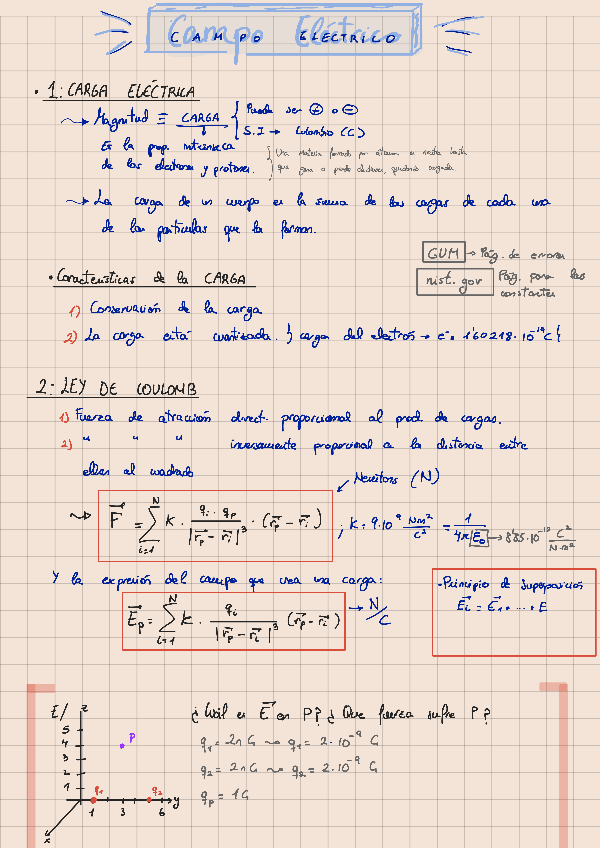 Campo Eléctrico
CAMPO ELÉCTRICO
· 1: CARGA ELÉCTRICA
Magnitud ≡ CARGA { Puede ser ⊕ o ⊖
S.I → Culombio (C)
Es la prop. intrínseca
de los electrones y protones.
que gana o pierde electrones, quedando cargada
→ La carga de un cuerpo es la suma de las cargas de cada una
de las partículas que la forman.
GUM → Pág. de errores
nist.gov Pág. para las
constantes
· Características de la CARGA
1) Conservación de la carga
2) La carga está cuantizada. } carga del electrón → e⁻ = 1'60218·10⁻¹⁹ C {
2: LEY DE COULOMB
1) Fuerza de atracción direct. proporcional al prod. de cargas.
2) " " " inversamente proporcional a la distancia entre
ellas al cuadrado
Newtons (N)
F⃗ = ∑ᵢ₌₁ᴺ k · qᵢ · qₚ / |r⃗ₚ - r⃗ᵢ|³ · (r⃗ₚ - r⃗ᵢ) ; k = 9·10⁹ Nm²/C² = 1/4π E₀ → 8'85·10⁻¹² C²/N·m²
Y la expresión del campo que crea una carga:
E⃗ₚ = ∑ᵢ₌₁ᴺ k · qᵢ / |r⃗ₚ - r⃗ᵢ|³ (r⃗ₚ - r⃗ᵢ) → N/C
- Principio de Superposición
E⃗ᵢ = E⃗₁ + ... + E
E/ z
¿Cuál es E⃗ en P? ¿Que fuerza sufre P?
q₁ = 2nC → q₁ = 2·10⁻⁹ C
q₂ = 2nC → q₂ = 2·10⁻⁹ C
qₚ = 1C
5
4
3
2
1
P
q₁
q₂
1 3 6 y
x